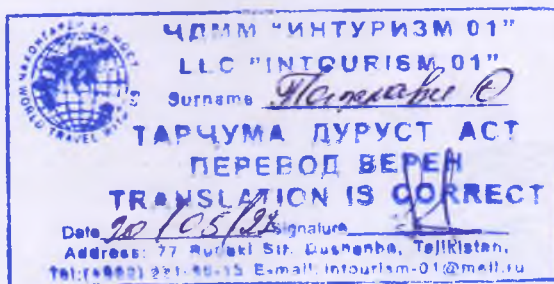 ҶДММ "ИНТУРИЗМ 01"
LLC "INTOURISM 01"
Surname
ТАРҶУМА ДУРУСТ АСТ
ПЕРЕВОД ВЕРЕН
TRANSLATION IS CORRECT
Date 20/05/ Signature
Address: 77 Rudaki Str. Dushanbe, Tajikistan,
E-mail: intourism-01@mail.ru
WORLD TRAVEL